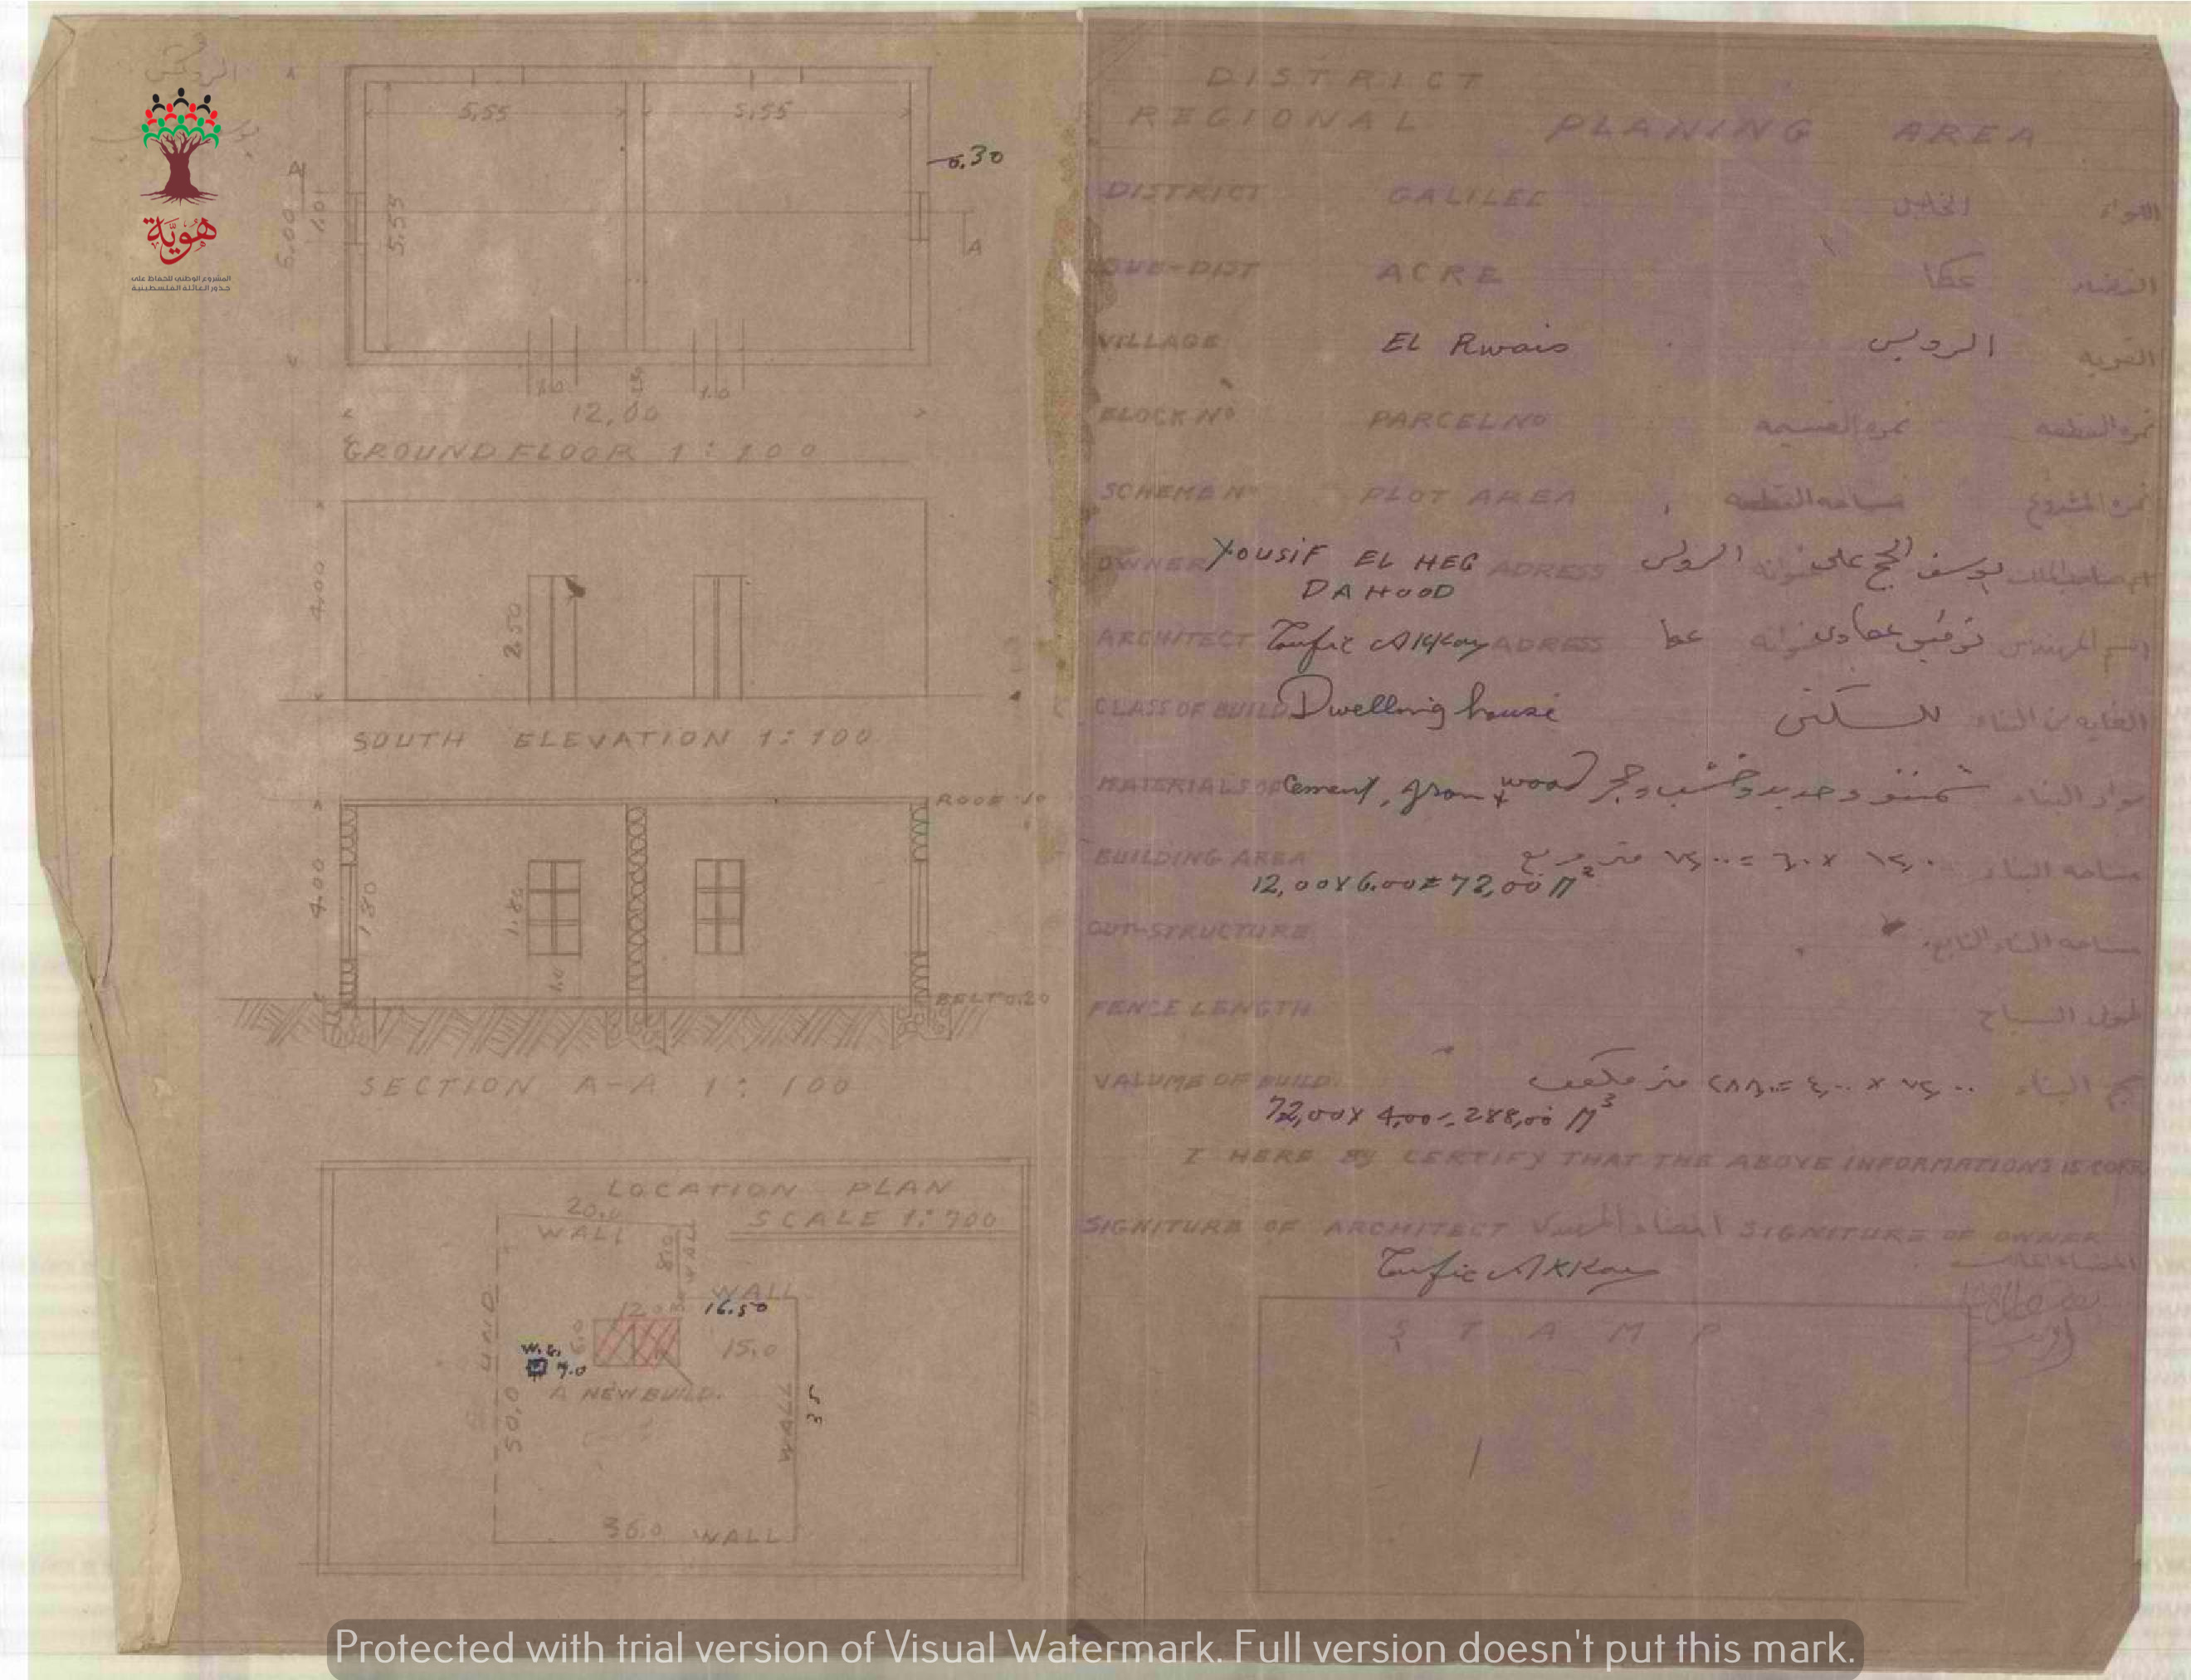 هويّة
المشروع الوطني للحفاظ على
جذور العائلة الفلسطينية
5,55 5,55
0.30
6.00
1.01
5.55
A
1.0 1.0
12,00
GROUND FLOOR 1:100
4,00
2.50
SOUTH ELEVATION 1:100
ROOF
4.00
1.80
1.80
1.0
BELT 0.20
SECTION A-A 1:100
LOCATION PLAN
SCALE 1:
20.0
WALL
8.0
WALL
WALL
16.50
12.0
6.0
15.0
W.C.
7.0
A NEW BUILD.
50.0
WALL
35
36.0 WALL
DISTRICT
REGIONAL PLANING AREA
DISTRICT GALILEE اللواء
SUB-DIST ACRE عكا القضاء
VILLAGE EL Rwais الرويس القرية
BLOCK No PARCEL NO نمرة القسيمه نمرة القطعه
SCHEME No PLOT AREA مساحه القطعه نمرة المشروع
OWNER YOUSIF EL HEG ADRESS الرويس عنوانه يوسف الحج علي
DAHOOD
ARCHITECT Taufic AKKawy ADRESS عكا عنوانه توفيق عكاوي اسم المهندس
CLASS OF BUILD Dwelling house للسكنى الغايه من البناء
MATERIALS OF Cement, Iron + wood شمنتو وحديد وخشب وحجر مواد البناء
BUILDING AREA ١٢,٠٠ x ٦,٠٠ = ٧٢,٠٠ متر مربع مساحه البناء
12,00X6.00=72,00 M²
OUT-STRUCTURE مساحه البناء التابع
FENCE LENGTH طول السياج
VALUME OF BUILD. ٧٢,٠٠ x ٤,٠٠ = ٢٨٨,٠٠ متر مكعب حجم البناء
72,00X 4,00=288,00 M³
I HERE BY CERTIFY THAT THE ABOVE INFORMATIONS IS CORR
SIGNITURE OF ARCHITECT امضاء المهندس SIGNITURE OF OWNER
Taufic AKKawy
STAMP
Protected with trial version of Visual Watermark. Full version doesn't put this mark.